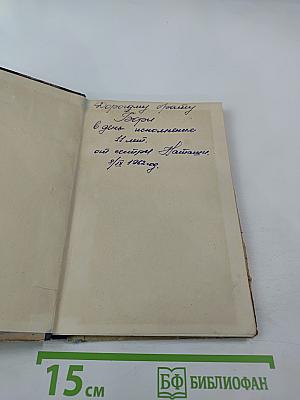 Дорогому брату
Боре
в день исполнения
11 лет.
от сестры Наташи.
8/IX 1962 год.
15 см
БФ БИБЛИОФАН